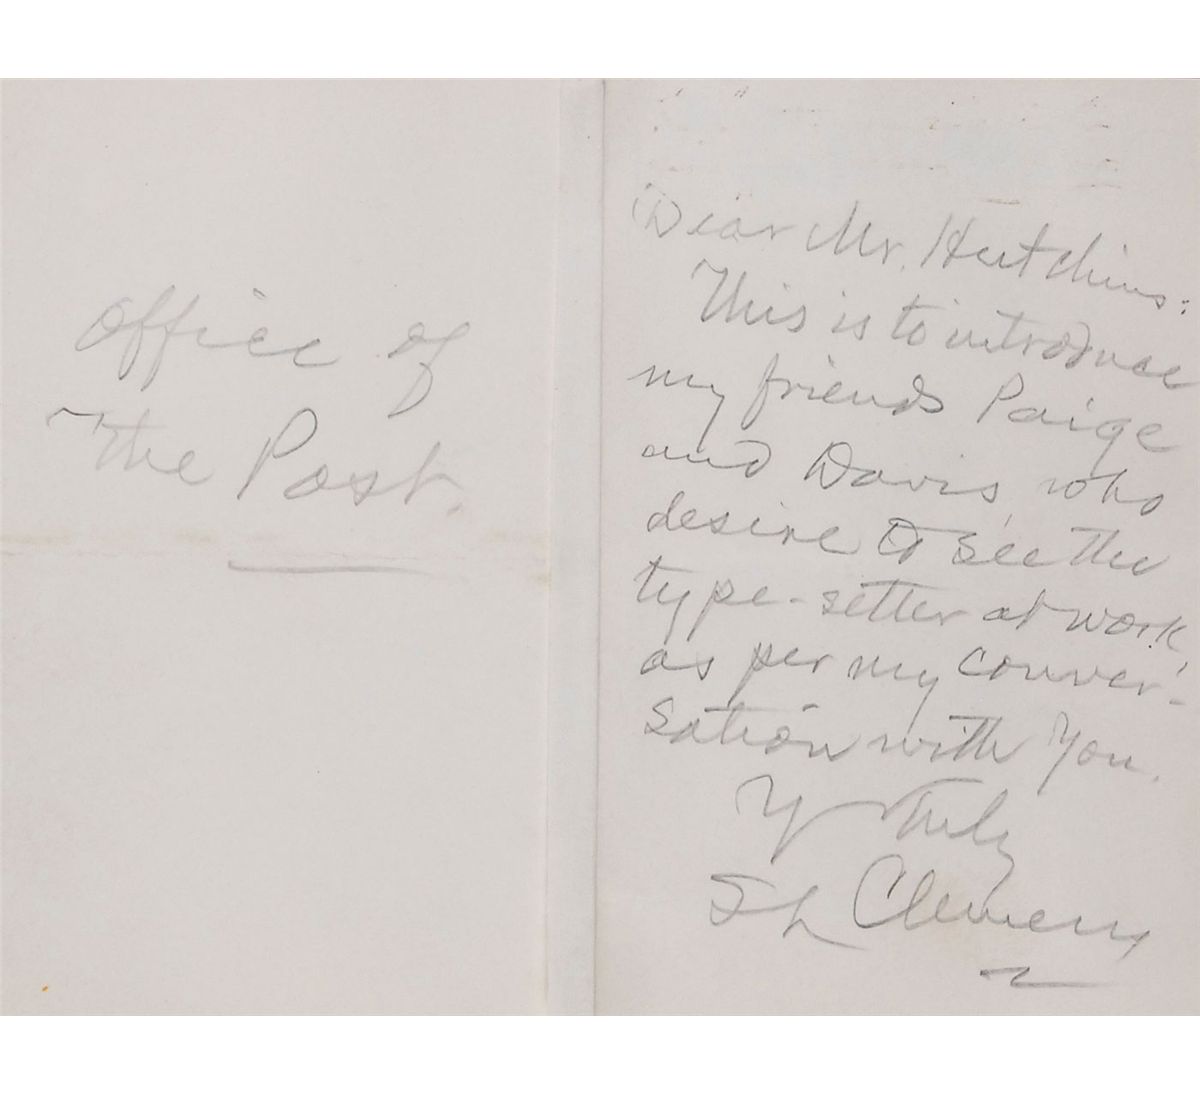 Office of
The Post.
Dear Mr. Hutchins:
This is to introduce
my friends Paige
and Davis, who
desire to see the
type-setter at work,
as per my conver-
sation with you.
Y Truly
SL Clemens